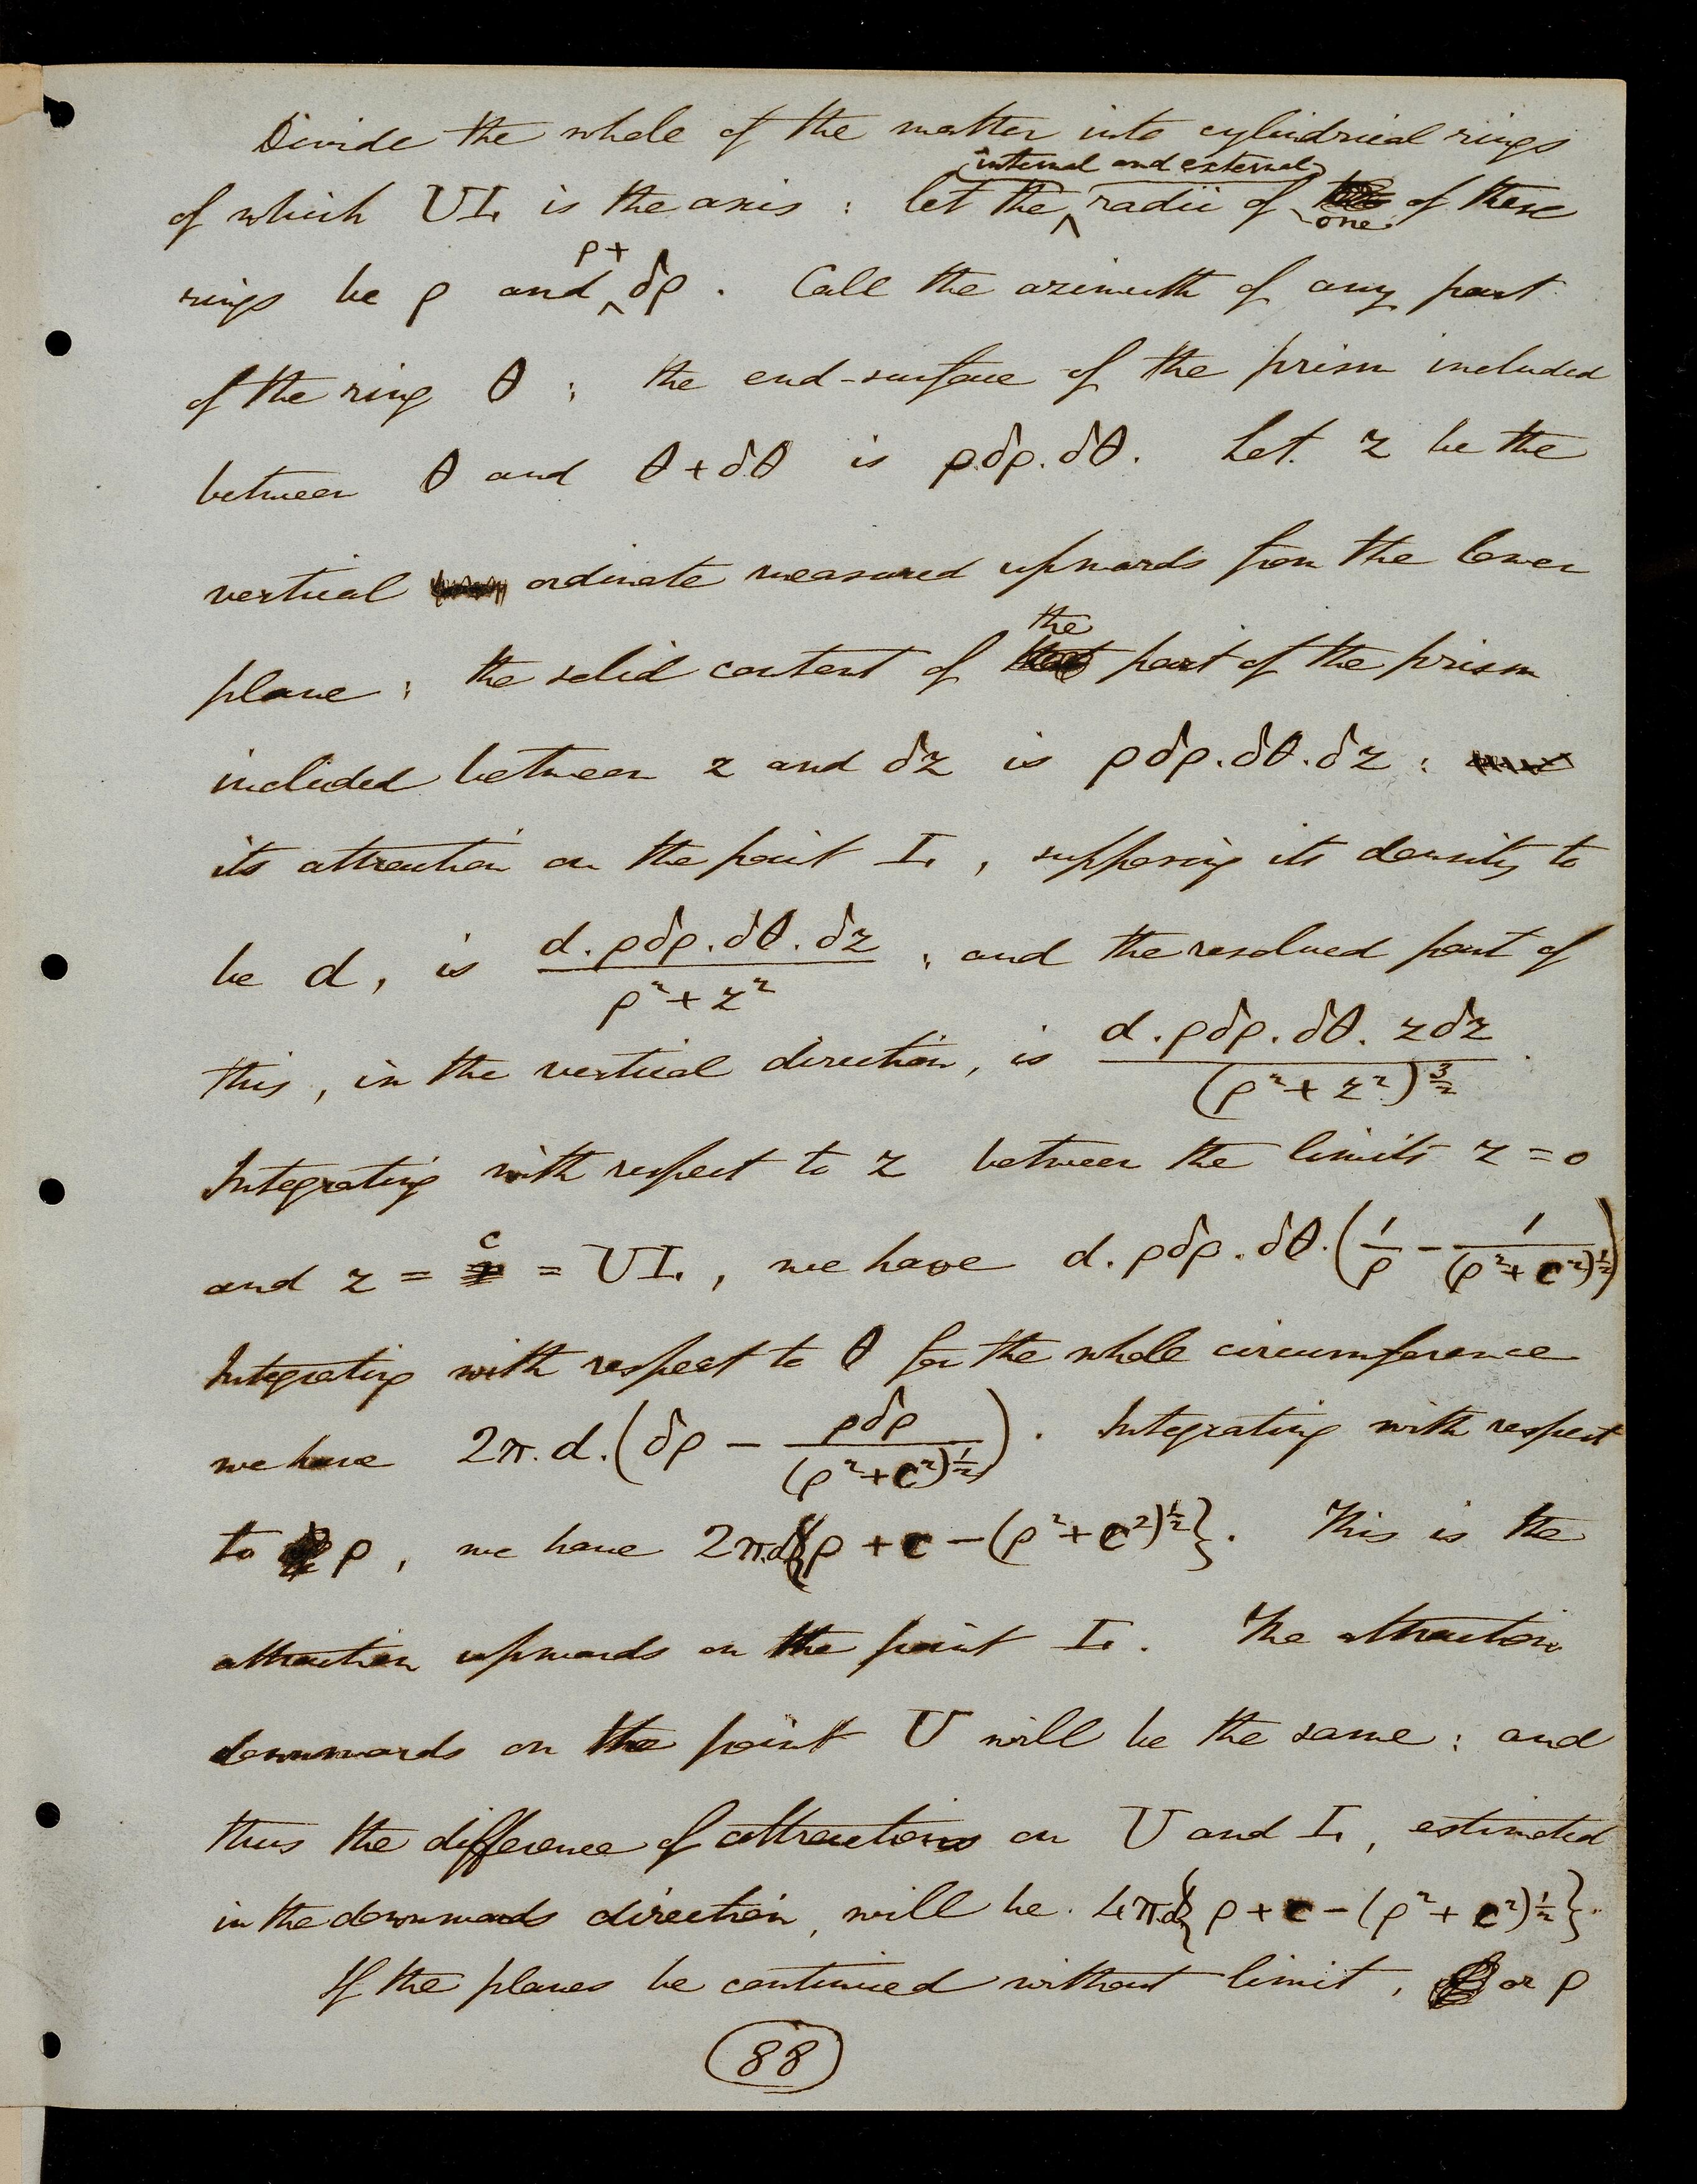 Divide the whole of the matter into cylindrical rings
internal and external
of which UL is the axis : let the radii of one of these
ρ+
rings be ρ and δρ . Call the azimuth of any part
of the ring θ ; the end-surface of the prism included
between θ and θ+δθ is ρ.δρ.δθ. Let z be the
vertical ordinate measured upwards from the lower
the
plane ; the solid content of part of the prism
included between z and δz is ρδρ.δθ.δz :
its attraction on the point L , supposing its density to
be d, is d.ρδρ.δθ.δz / ρ²+z² ; and the resolved part of
this, in the vertical direction, is d.ρδρ.δθ.zδz / (ρ²+z²)^3/2 .
Integrating with respect to z between the limits z=0
and z = c = UL , we have d.ρδρ.δθ.(1/ρ − 1/(ρ²+c²)^1/2)
Integrating with respect to θ for the whole circumference
we have 2π.d.(δρ − ρδρ/(ρ²+c²)^1/2) . Integrating with respect
to ρ , we have 2π.d{ρ+c−(ρ²+c²)^1/2}. This is the
attraction upwards on the point L . The attraction
downwards on the point U will be the same : and
thus the difference of attractions on U and L , estimated
in the downwards direction, will be 4π.d{ρ+c−(ρ²+c²)^1/2}.
If the planes be continued without limit, or ρ
88